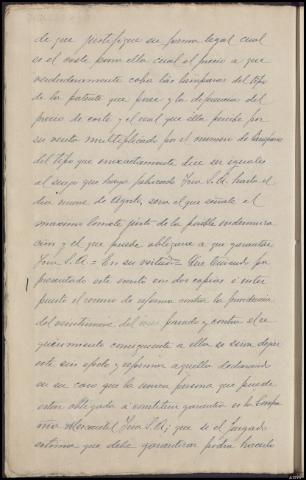 de que justifique en forma legal cual
es el coste para ella cual el precio a que
verdaderamente cobra las lamparas del tipo
de la patente que posee y la diferencia del
precio de coste y el cual que ella percibe por
su venta multiplicado por el numero de lamparas
del tipo que inexactamente dice ser iguales
al suyo que haya fabricado Irua S.A. hasta el
dia nueve de Agosto, sera el que señale el
maximo limite justo de la posible indemniza
cion y el que puede obligarse a que garantice
Irua S.A. = En su virtud = Que teniendo por
presentado este escrito con dos copias e inter
puesto el recurso de reforma contra la providencia
del veintinueve del mes pasado y contra el re
querimiento consiguiente a ella se sirva dejar
este sin efecto y reformar aquella declarando
en su caso que la unica persona que puede
estar obligada a constituir garantia es la Compa
ñia Mercantil Irua S.A; que si el Juzgado
estima que debe garantizar podra hacerlo